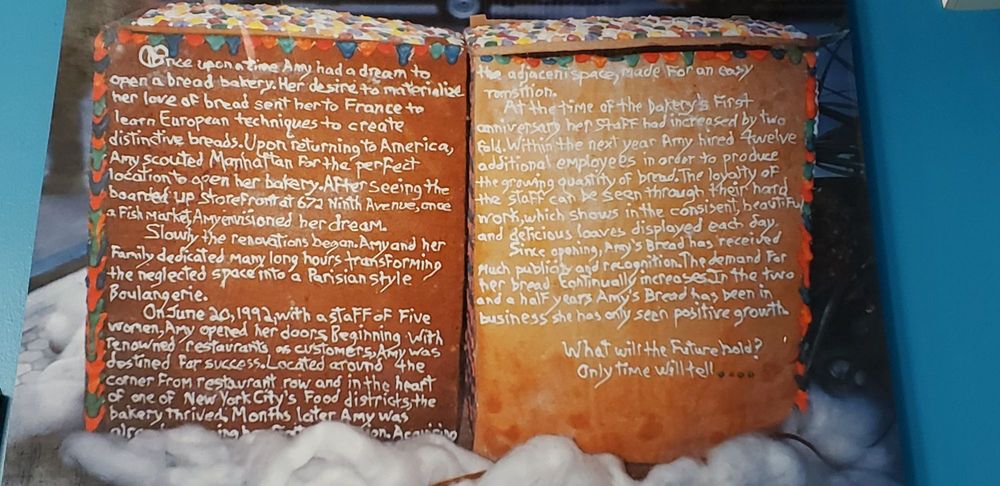 Once upon a time Amy had a dream to
open a bread bakery. Her desire to materialize
her love of bread sent her to France to
learn European techniques to create
distinctive breads. Upon returning to America,
Amy scouted Manhattan for the perfect
location to open her bakery. After seeing the
boarded up storefront at 672 Ninth Avenue, once
a Fish Market, Amy envisioned her dream.
Slowly the renovations began. Amy and her
Family dedicated many long hours transforming
the neglected space into a Parisian style
Boulangerie.
On June 20, 1992, with a staff of Five
women, Amy opened her doors. Beginning with
renowned restaurants as customers, Amy was
destined for success. Located around the
corner from restaurant row and in the heart
of one of New York City's Food districts, the
bakery thrived. Months later Amy was
Acquiring
the adjacent space, made For an easy
transition.
At the time of the bakery's First
anniversary her staff had increased by two
Fold. Within the next year Amy hired twelve
additional employees in order to produce
the growing quantity of bread. The loyalty of
the staff can be seen through their hard
work, which shows in the consisent, beautiful
and delicious loaves displayed each day.
Since opening, Amy's Bread has received
much publicity and recognition. The demand For
her bread continually increases. In the two
and a half years Amy's Bread has been in
business she has only seen positive growth.
What will the Future hold?
Only time will tell.....